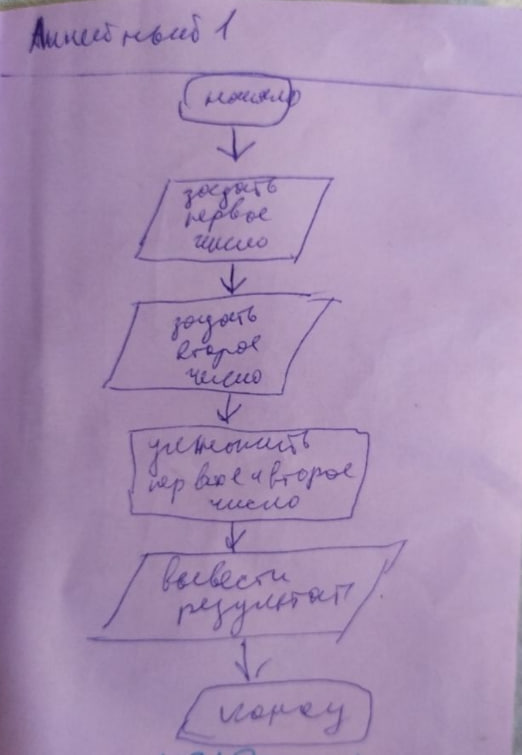 Линейный 1
начало
задать
первое
число
задать
второе
число
умножить
первое и второе
число
вывести
результат
конец